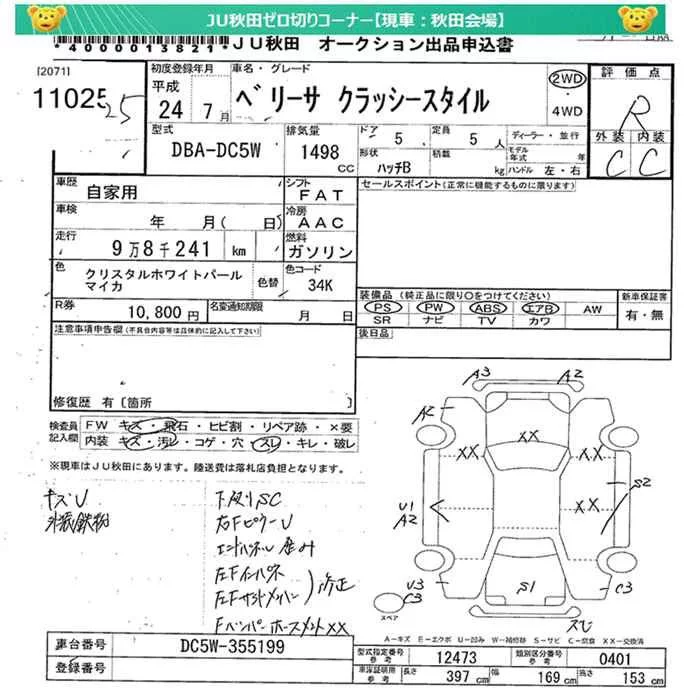 JU秋田ゼロ切りコーナー【現車：秋田会場】
*4000013821* JU秋田 オークション出品申込書
[2071]
11025
25
初度登録年月
平成
24 7月
車名・グレード
ベリーサ クラッシースタイル
2WD
・
4WD
評価点
R
外装 内装
C C
型式
DBA-DC5W
排気量
1498
CC
ドア 5
定員 5人
ディーラー・並行
形状 ハッチB
積載 kg
モデル年式 年
ハンドル 左・右
車歴 自家用
シフト FAT
セールスポイント(正常に機能するものに限ります)
車検 年 月( 日)
冷房 AAC
走行 9万8千241 km
燃料 ガソリン
色 クリスタルホワイトパール
マイカ
色替
色コード
34K
R券 10,800円
名変通知期限
月 日
装備品 (純正品に限り○をつけてください)
PS・PW・ABS・エアB・AW
SR ナビ TV カワ
新車保証書
有・無
注意事項申告欄(不具合内容等は具体的に記入して下さい)
後日品
修復歴 有[箇所 ]
検査員
記入欄
FW キズ・飛石・ヒビ割・リペア跡・×要
内装 キズ・汚レ・コゲ・穴・スレ・キレ・破レ
※現車はJU秋田にあります。陸送費は落札店負担となります。
キズU
外板鉄粉
下廻りSC
右FピラーU
エンドパネル歪み
左Fインパネ
左Fサイドメンバー
修正
Fバンパーホースメント××
A3
A2
A2
XX
XX
XX
XX
U1
A2
S2
U3
C3
S1
C3
スペア
スレ
A－キズ E－エクボ U－凹み W－補修跡 S－サビ C－腐食 XX－交換済
車台番号 DC5W-355199
登録番号
型式指定番号
参考
12473
類別区分番号
参考
0401
車庫証明用
参考
長さ 397 cm
幅 169 cm
高さ 153 cm